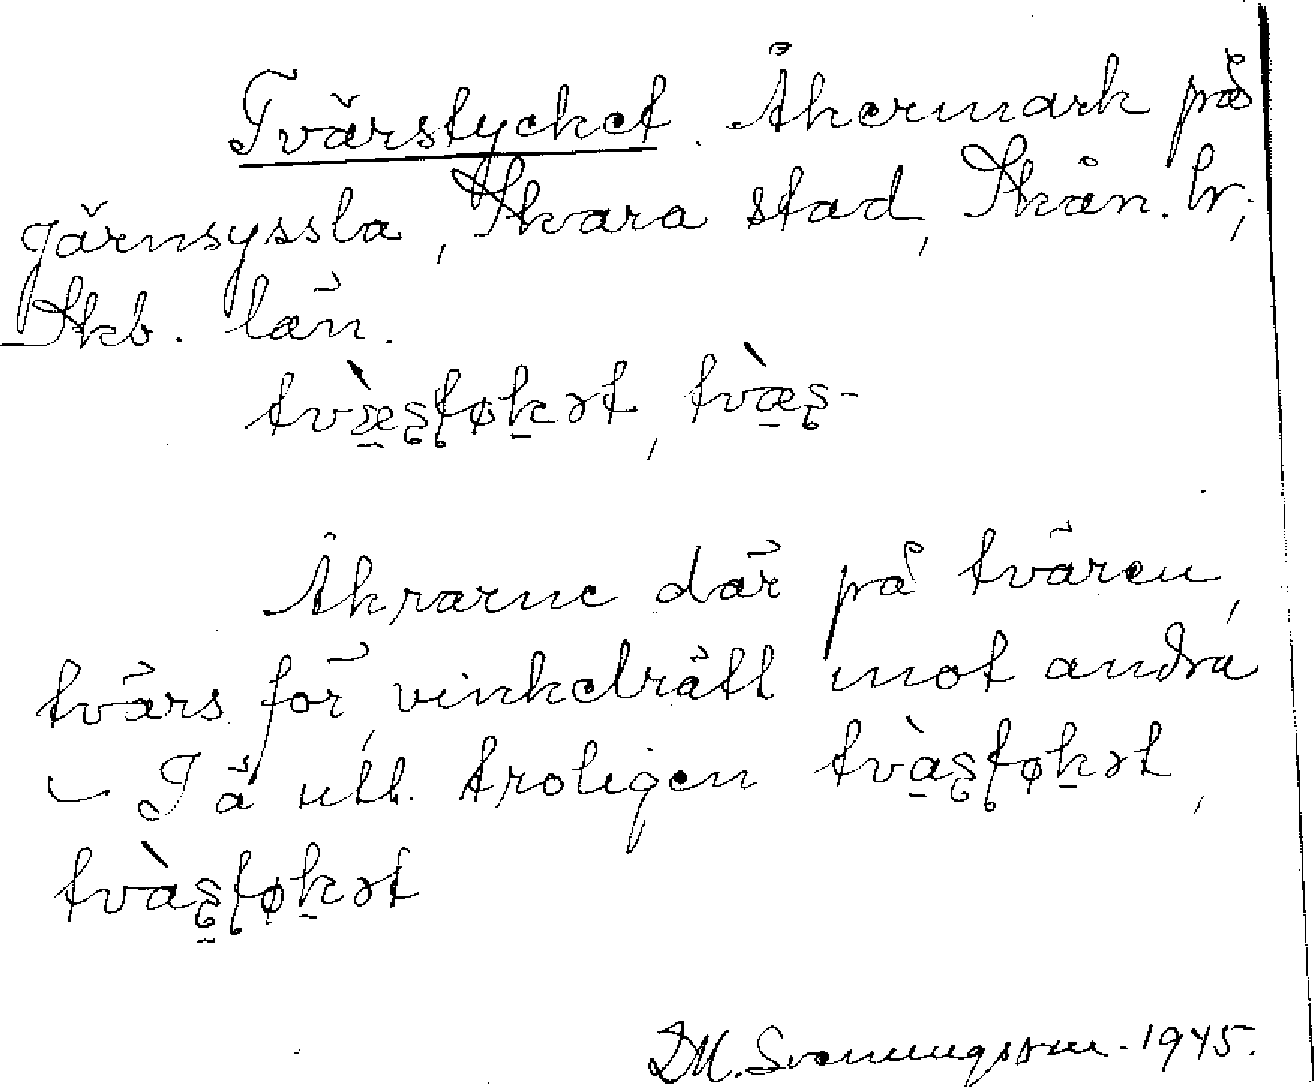 Tvärstycket. Åkermark på
Järnsyssla, Skara stad, Skån. hr;
Skb. län.
tvæ̀ʂʈøkət, tvæ̀ʂ-
Åkrarne där på tvären,
tvärs för, vinkelrätt mot andra
– I ä utt. troligen tvàʂʈøkət,
tvàʂʈøkət
D.M. Svenningsson. 1945.